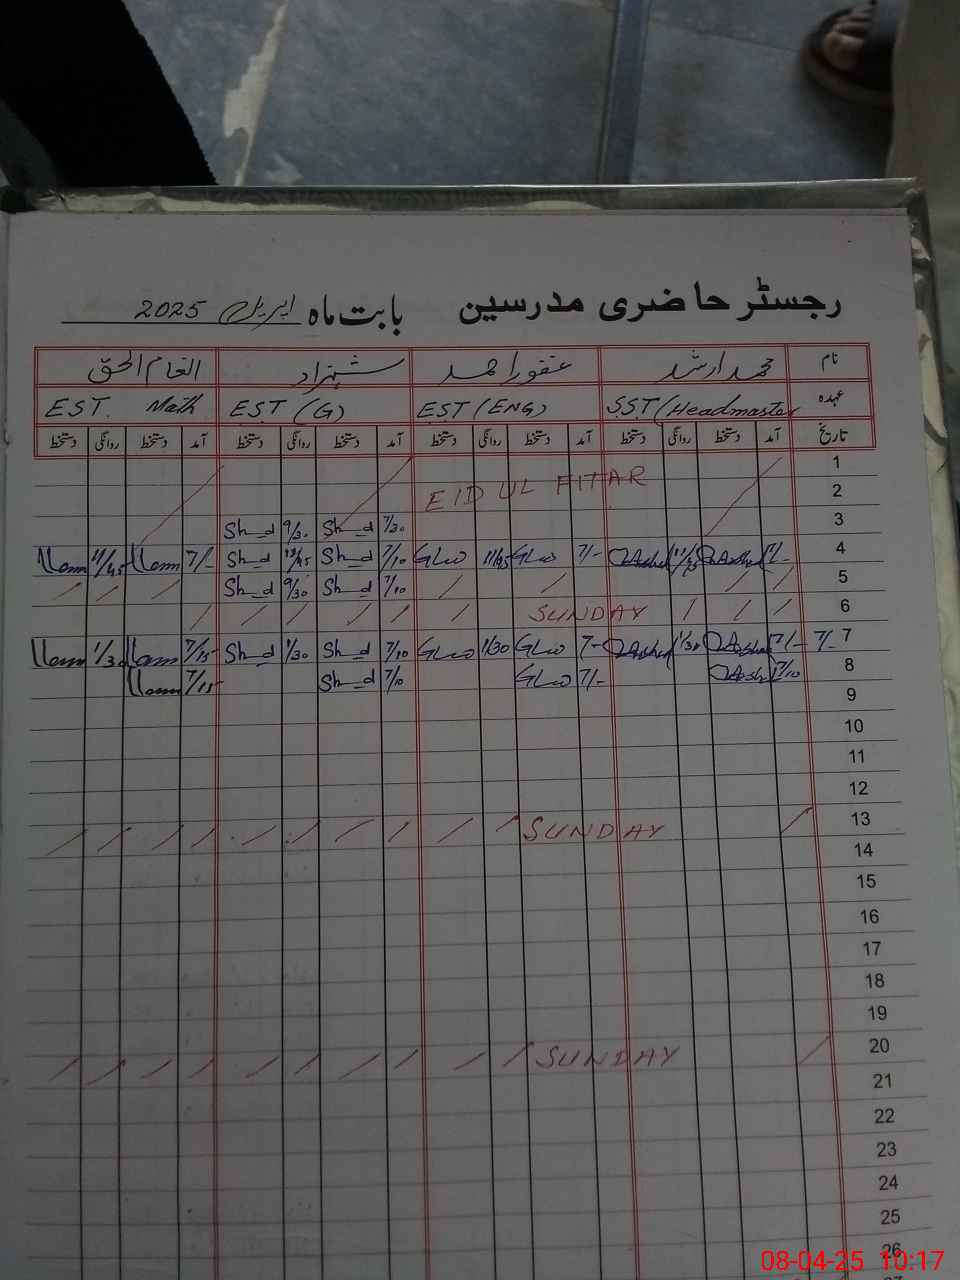 رجسٹر حاضری مدرسین بابت ماہ اپریل 2025
نام محمد ارشد غفور احمد شہزاد انعام الحق
عہدہ SST (Headmaster EST (ENG) EST (G) EST. Math
تاریخ آمد دستخط روانگی دستخط آمد دستخط روانگی دستخط آمد دستخط روانگی دستخط آمد دستخط روانگی دستخط
1
2 EID UL FITAR
3 7/30 Sh_d 9/30 Sh_d
4 7/- 7/- 11/45 7/10 Sh_d Sh_d 7/- 11/45
5 7/10 Sh_d 9/30 Sh_d
6 SUNDAY
7 7/- 7/- 1/30 7/- 1/30 7/10 Sh_d 1/30 Sh_d 7/15 1/30
8 7/10 7/- 7/10 Sh_d 7/15
9
10
11
12
13 SUNDAY
14
15
16
17
18
19
20 SUNDAY
21
22
23
24
25
26
08-04-25 10:17